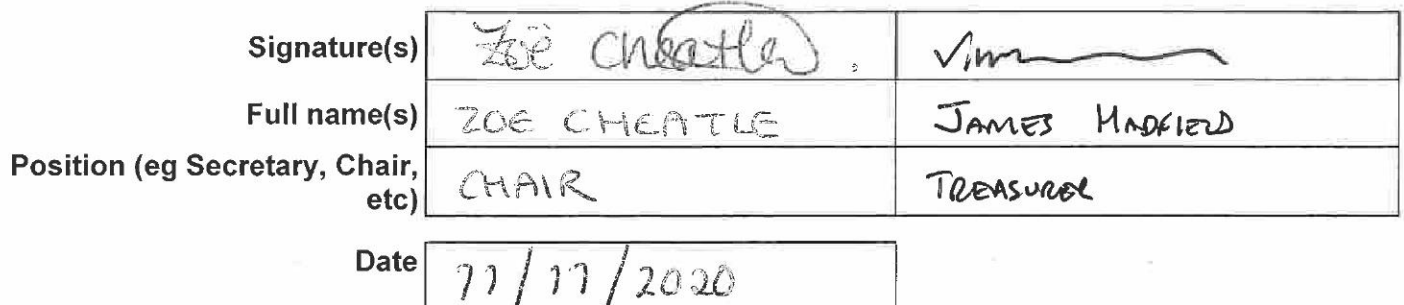 Signature(s) Zoë Cheatle.
Full name(s) ZOE CHEATLE JAMES HADFIELD
Position (eg Secretary, Chair,
etc) CHAIR TREASURER
Date 11/11/2020